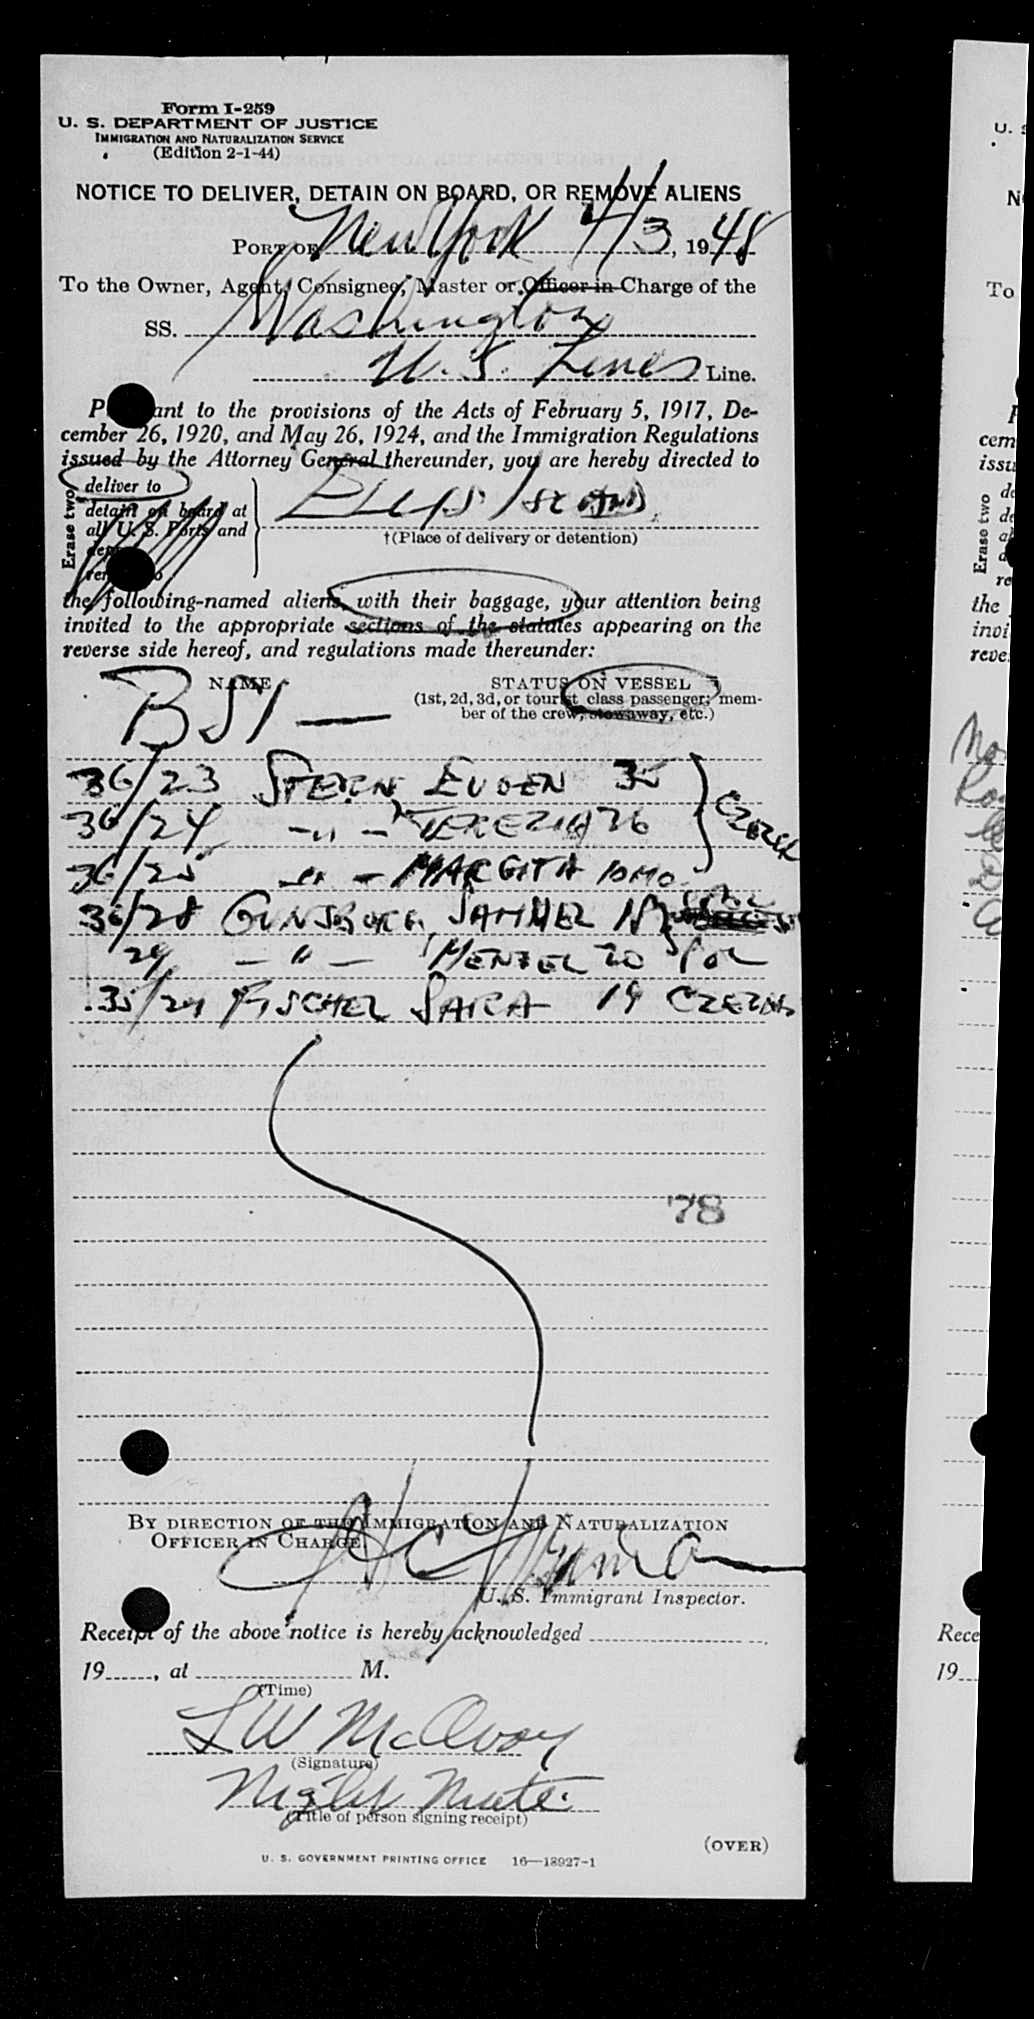 Form I-259
U. S. DEPARTMENT OF JUSTICE
IMMIGRATION AND NATURALIZATION SERVICE
(Edition 2-1-44)
NOTICE TO DELIVER, DETAIN ON BOARD, OR REMOVE ALIENS
PORT OF New York 4/3, 1948
To the Owner, Agent, Consignee, Master or Officer in Charge of the
SS. Washington
U. S. Lines Line.
Pursuant to the provisions of the Acts of February 5, 1917, De-
cember 26, 1920, and May 26, 1924, and the Immigration Regulations
issued by the Attorney General thereunder, you are hereby directed to
Erase two
deliver to
detain on board at
all U. S. Ports and
Ellis Island
†(Place of delivery or detention)
the following-named aliens, with their baggage, your attention being
invited to the appropriate sections of the statutes appearing on the
reverse side hereof, and regulations made thereunder:
NAME STATUS ON VESSEL
(1st, 2d, 3d, or tourist class passenger; mem-
ber of the crew, stowaway, etc.)
BSI —
36/23 STERN EUGEN 35
36/24 -"- TEREZIA 26 CZECH
36/25 -"- MARGITA 10 MO
36/28 GUNSBERG, SAMUEL 18
29 -"- MENDEL 20 POL
35/29 FISCHEL SARA 19 CZECH
78
BY DIRECTION OF THE IMMIGRATION AND NATURALIZATION
OFFICER IN CHARGE
U. S. Immigrant Inspector.
Receipt of the above notice is hereby acknowledged
19, at M.
(Time)
L W McAvoy
(Signature)
Night Mate
(Title of person signing receipt)
(OVER)
U. S. GOVERNMENT PRINTING OFFICE 16—18927-1
U. S
N
To
cem
issu
Erase two
the
invi
reve
Rece
19